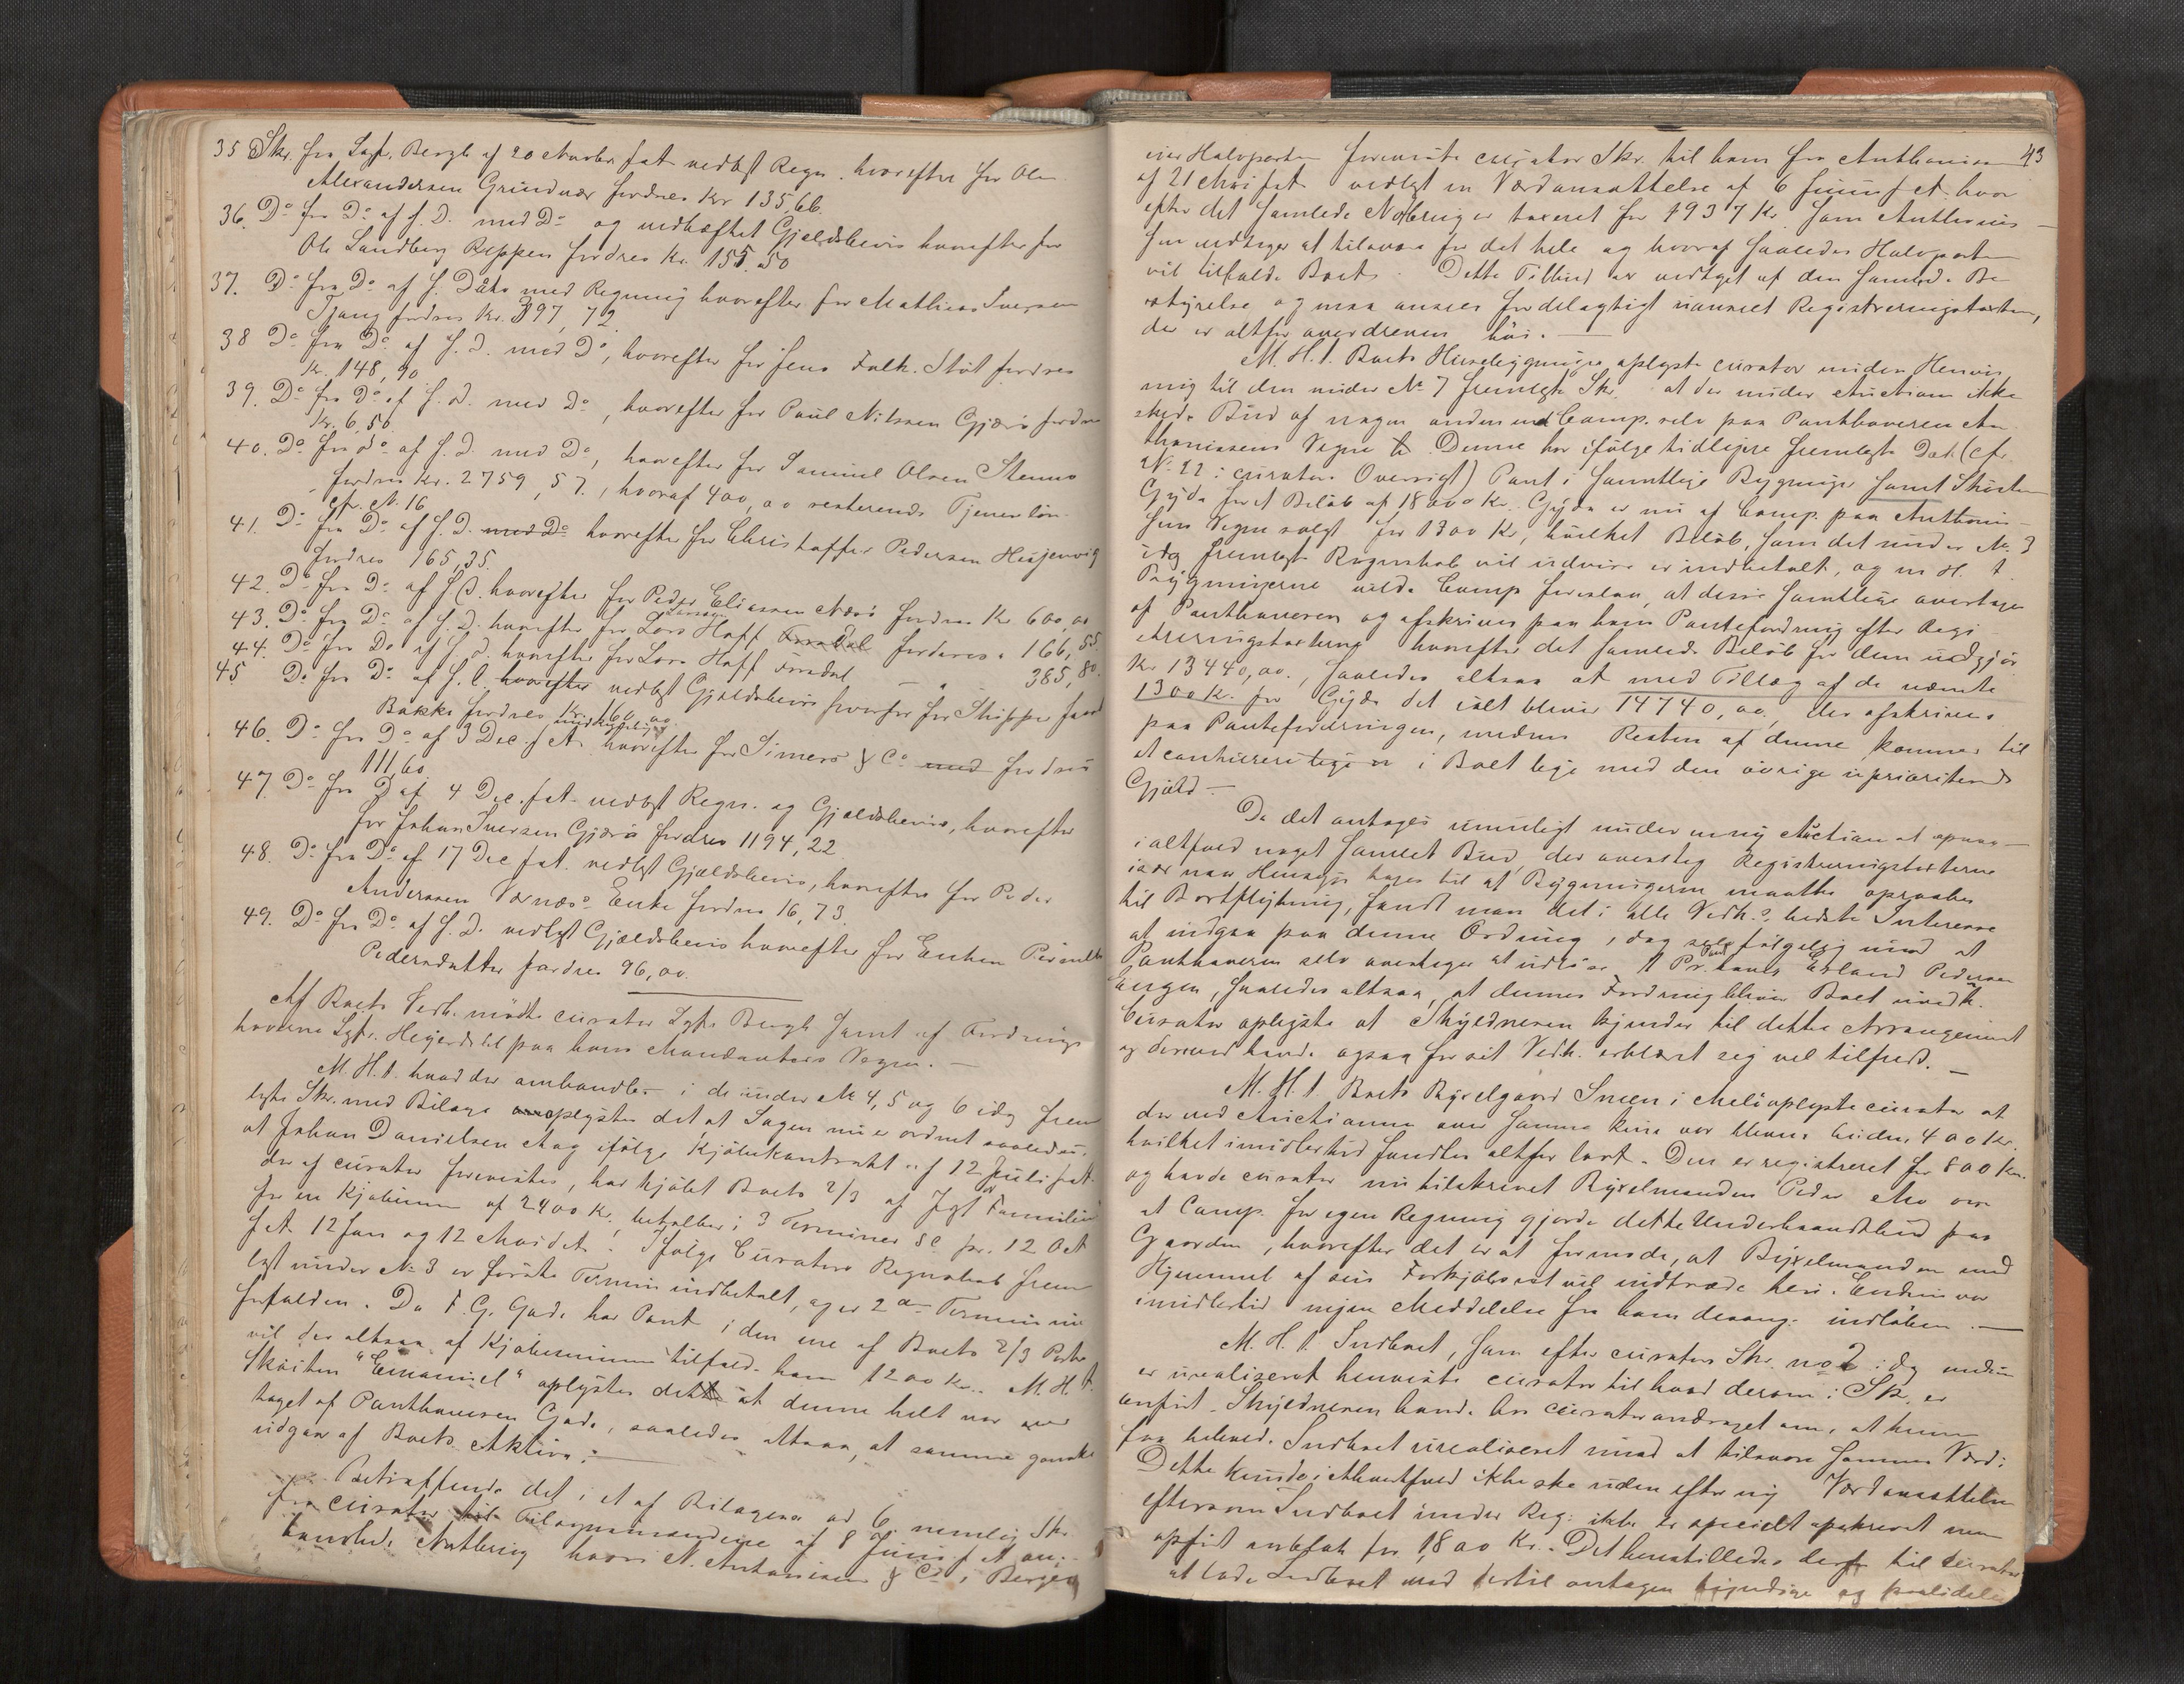 35 Skr. fra Sagf. Bergh af 20 Novbr f. A. vedlgt Regn. hvorefter for Ole
Alexandersen Grindnæs fordres Kr 135,66.
36. Do fra Do af s. D. med Do og vedhæftet Gjældsbevis hvorefter for
Ole Sandberg Reppen fordres Kr. 155.50
37. Do fra Do af s. Dato med Regning hvorefter for Mathias Iversen
fordres Kr. 397,72.
38 Do fra Do af s. D. med Do, hvorefter for Jens Falk. Støt fordres
Kr. 148,90
39. Do fra Do af s. D. med Do, hvorefter for Paul Nilssen Gjærø fordres
Kr. 6,50.
40. Do fra Do af s. D. med Do, hvorefter for Samuel Olsen Stennes
fordres Kr. 2759,57., hvoraf 400,00 resterende Tjenerløn.
cfr. N. 16
41. Do fra Do af s. D. med Do hvorefter for Christoffer Pedersen
fordres 165,35.
42. Do fra Do af s. D. hvorefter for Peder Eliassen Nesø fordres Kr 600,00
43. Do fra Do af s. D. hvorefter for Lars Larsen Hoff Forsdal fordres " 166,55.
44. Do fra Do af s. D. hvorefter for Lars Hoff Forsdal — " — 385,80.
45 Do fra Do af s. D. hvorefter vedlgt Gjældsbevis hvorefter for Skipper
Bakke fordres Kr. 160,00.
46. Do fra Do af 3 Dec. f. A. hvorefter for Simers & Co med fordres
111,60
47. Do fra D af 4 Dec. f. A. vedlgt Regn. og Gjældsbevis, hvorefter
for Johan Iversen Gjærø fordres 1194,22.
48. Do fra Do af 17 Dec f. A. vedlgt Gjældsbevis, hvorefter for Peder
Anderssen Værnes Enke fordres 16,73.
49. Do fra Do af s. D. vedlgt Gjældsbevis hvorefter for Enken Pernelle
Pedersdatter fordres 96,00.
Af Boets Vedk. mødte curator Sgfr. Bergh samt af Fordrings
haverne Sgfr. Hegerdahl paa hans Mandanters Vegne. —
M. H. t. hvad der omhandles i de under No 4, 5 og 6 idag frem
lgte Skr. med Bilage oplystes det, at Sagen nu er ordnet saaledes:
at Johan Danielsen Aag ifølge Kjøbekontrakt af 12 Juli f. A.
der af curator forevistes, har kjøbt Boets 2/3 af Jgt Familien
for en Kjøbesum af 2400 Kr. betalbar i 3 Terminer pr. 12 Oct
f. A. 12 Jan og 12 Mai d. A. Ifølge Curators Regnskab frem
lgt under No 3 er første Termin indbetalt, og er 2den Termin nu
forfalden. Da F. G. Gade har Pant i den ene af Boets 2/3 Parter
vil der altsaa af Kjøbesummen tilfalde ham 1200 Kr. M. H. t.
Skøiten "Emanuel" oplystes det at denne helt var over
taget af Panthaveren Gade, saaledes altsaa, at samme ganske
udgaar af Boets Aktiva. —
Betræffende det, i et af Bilagene ad 6, nemlig Skr.
fra curator til Tilsynsmændene af 8 Juni f. A. om
handlede Notbrug hvori A. Antonisen & Co i Bergen
43
eier Halvparten foreviste curator Skr. til ham fra Anthonisen
af 21 Mai f. A. vedlgt en Værdiansættelse af 6 Juni f. A. hvor
efter det samlede Notbrug er taxeret for 1937 Kr. som Anthonis
sen vedtager at tilsvare for det hele og hvoraf saaledes Halvparten
vil tilfalde Boet. Dette Tilbud er vedtaget af den samlede Be
styrelse og maa ansees fordelagtigt uanseet Registreringstaxten,
der er altfor overdreven høi. —
M. H. t. Boets Husebygninger oplyste curator under Henvis
ning til den under No 7 fremlgte Skr. at der under Auctionen ikke
skede Bud af nogen anden end Comp. selv paa Panthaveren An
thonissens Vegne. Denne har ifølge tidligere fremlgte Dok (cfr.
No. 22: curators Oversigt) Pant i samtlige Bygninger samt Skøiten
Gyda for et Beløb af 18000 Kr. Gyda er nu af Comp. paa Anthonis
sens Vegne solgt for 1300 Kr, hvilket Beløb, som det under No. 3
idag fremlgte Regnskab vil udvise er indbetalt, og m. H. t.
Bygningerne vilde Comp foreslaa, at disse samtlige overtages
af Panthaveren og afskrives paa hans Pantefordring efter Regi
streringstaxterne hvorefter det samlede Beløb for dem udgjør
Kr 13440,00., saaledes altsaa at med Tillæg af de nævnte
1300 Kr. for Gyda det ialt bliver 14740,00, der afskrives
paa Pantefordringen, medens Resten af denne kommer til
at conkurrere lige i Boet lige med den øvrige uprioriterede
Gjæld. —
Da det antages umuligt under en ny Auction at opnaa
i altfald noget samlet Bud, der oversteg Registreringstaxterne
især naar Hensyn tages til at Bygningerne maatte opraabes
til Bortflytning, fandt man det i alle Vedk.s bedste Interesse
at indgaa paa denne Ordning, dog selvfølgelig mod at
Panthaveren selv overtager at udløse 1 Pr. Panth. Erland Pedersen
Bergen, saaledes altsaa, at dennes Fordring bliver Boet uvedk.
Curator oplyste at Skyldneren kjender til dette Arrangement
og derved havde ogsaa for sit Vedk. erklæret sig vel tilfreds. —
M. H. t. Boets Bygselgaard Sneen i Melø oplyste curator at
der ved Auctionen over samme kun var bleven buden 400 Kr.
hvilket imidlertid fandtes altfor lavt. Den er registreret for 800 Kr.
og havde curator nu tilskrevet Bygselmanden Peder Mo om
at Comp. for egen Regning gjorde dette Underhaandsbud paa
Gaarden, hvorefter det er at formode, at Bygselmanden med
Hjemmel af sin Forkjøbsret vil indtræde heri. Endnu var
imidlertid ingen Meddelelse fra ham desang. indløben. —
M. H. t. Indboet, som efter curators Skr. no 2 i dag endnu
er urealiseret henviste curator til hvad derom i Skr. er
anført. Skyldneren havde hos curator andraget om, at kunne
faa beholde Indboet urealiseret mod at tilsvare sammes Værdi.
Dette kunde i Altfald ikke ske uden efter ny Værdiansættelse
eftersom Indboet under Reg: ikke er specielt opskrevet men
opført anslaat for 1800 Kr. Det henstilledes derfor til Curator
at lade Indboet ved dertil antagen kyndige og paalidelige